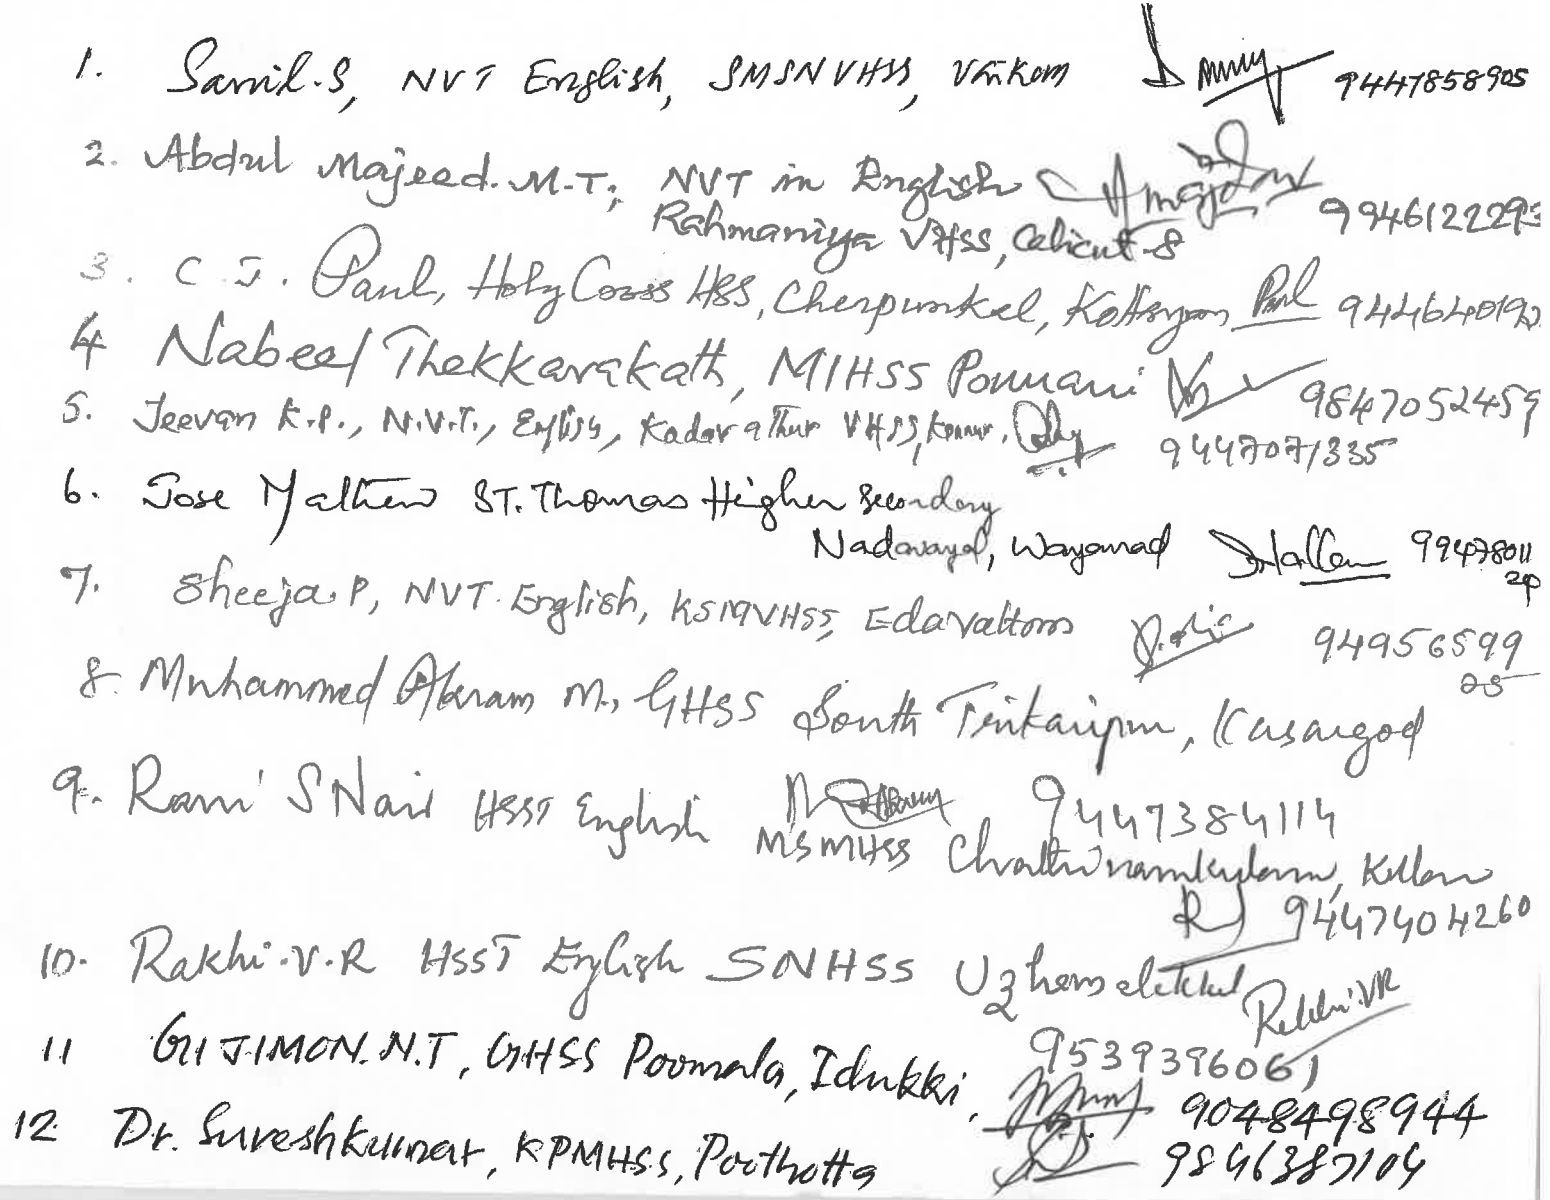 1. Sanil.S, NVT English, SMSNVHSS, Vaikom 9447858905
2. Abdul Majeed. M.T., NVT in English
Rahmaniya VHSS, Calicut-8 9946122293
3. C.J. Paul, Holy Cross HSS, Cherpunkal, Kottayam Paul 944640190
4 Nabeel Thekkarakath, MIHSS Ponnani 9847052459
5. Jeevan K.P., N.V.T., English, Kadavathur VHSS, Kannur. 9447071335
6. Jose Mathew ST. Thomas Higher Secondary
Nadavayal, Wayanad 99478011
20
7. Sheeja. P, NVT. English, KSMVHSS, Edavattom 94956599
05
8. Muhammed Akram M., GHSS South Trikaripur, Kasargod
9447384114
9. Rani S Nair HSST English MSMHSS Chathinamkulam, Kollam
9447404260
10. Rakhi.V.R HSST English SNHSS Uzhamalakkal Rakhi.VR
9539396061
11 GIJIMON. N.T, GHSS Poomala, Idukki, 9048498944
12 Dr. Sureshkumar, KPMHSS, Poothotta 9846387104